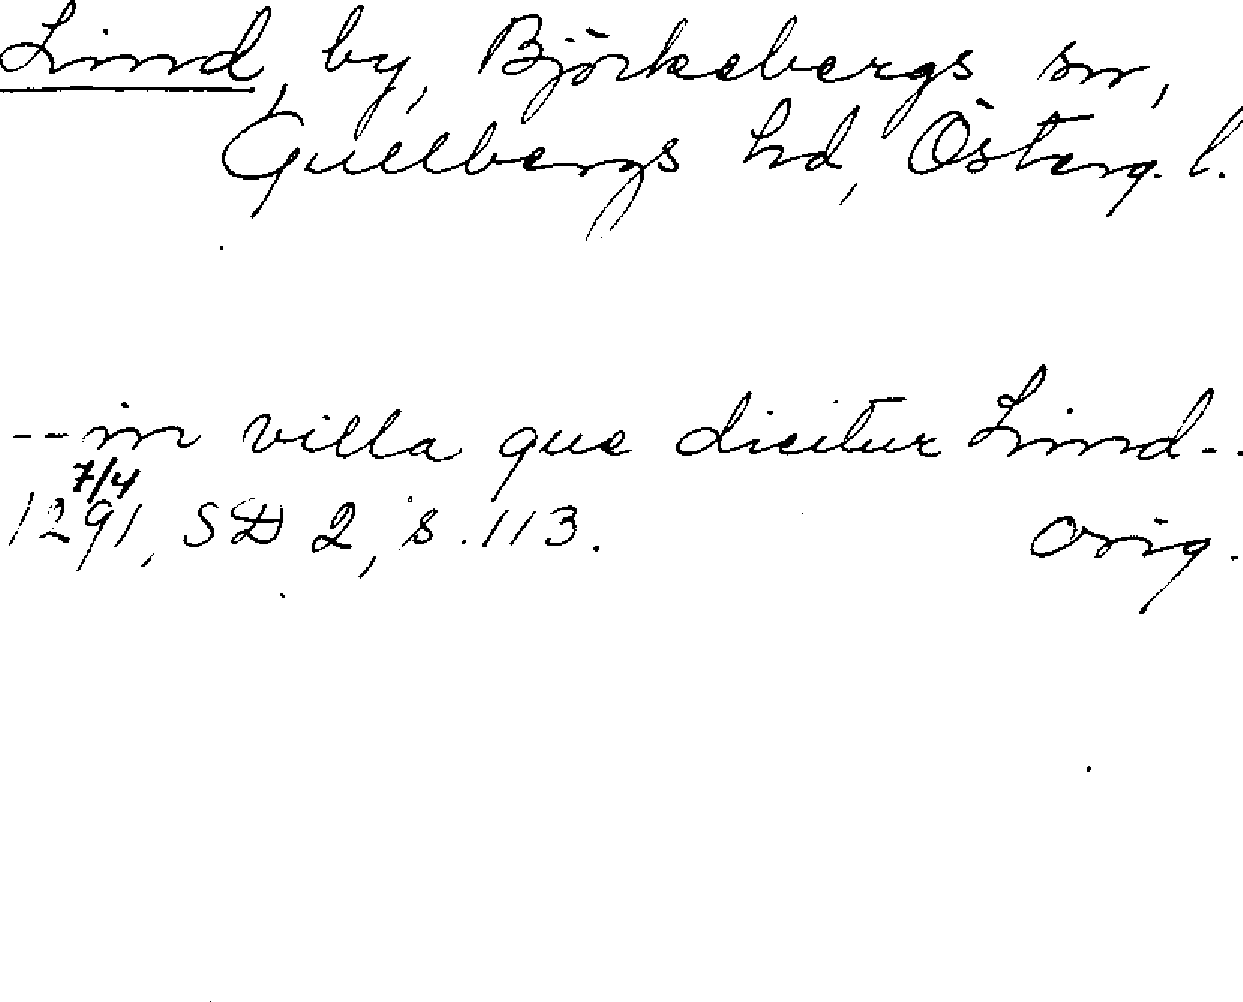 Lind, by, Björkebergs sn,
Gullbergs hd, Österg. l.
--in villa que dicitur Lind--
7/4
1291, SD 2, s. 113. Orig.